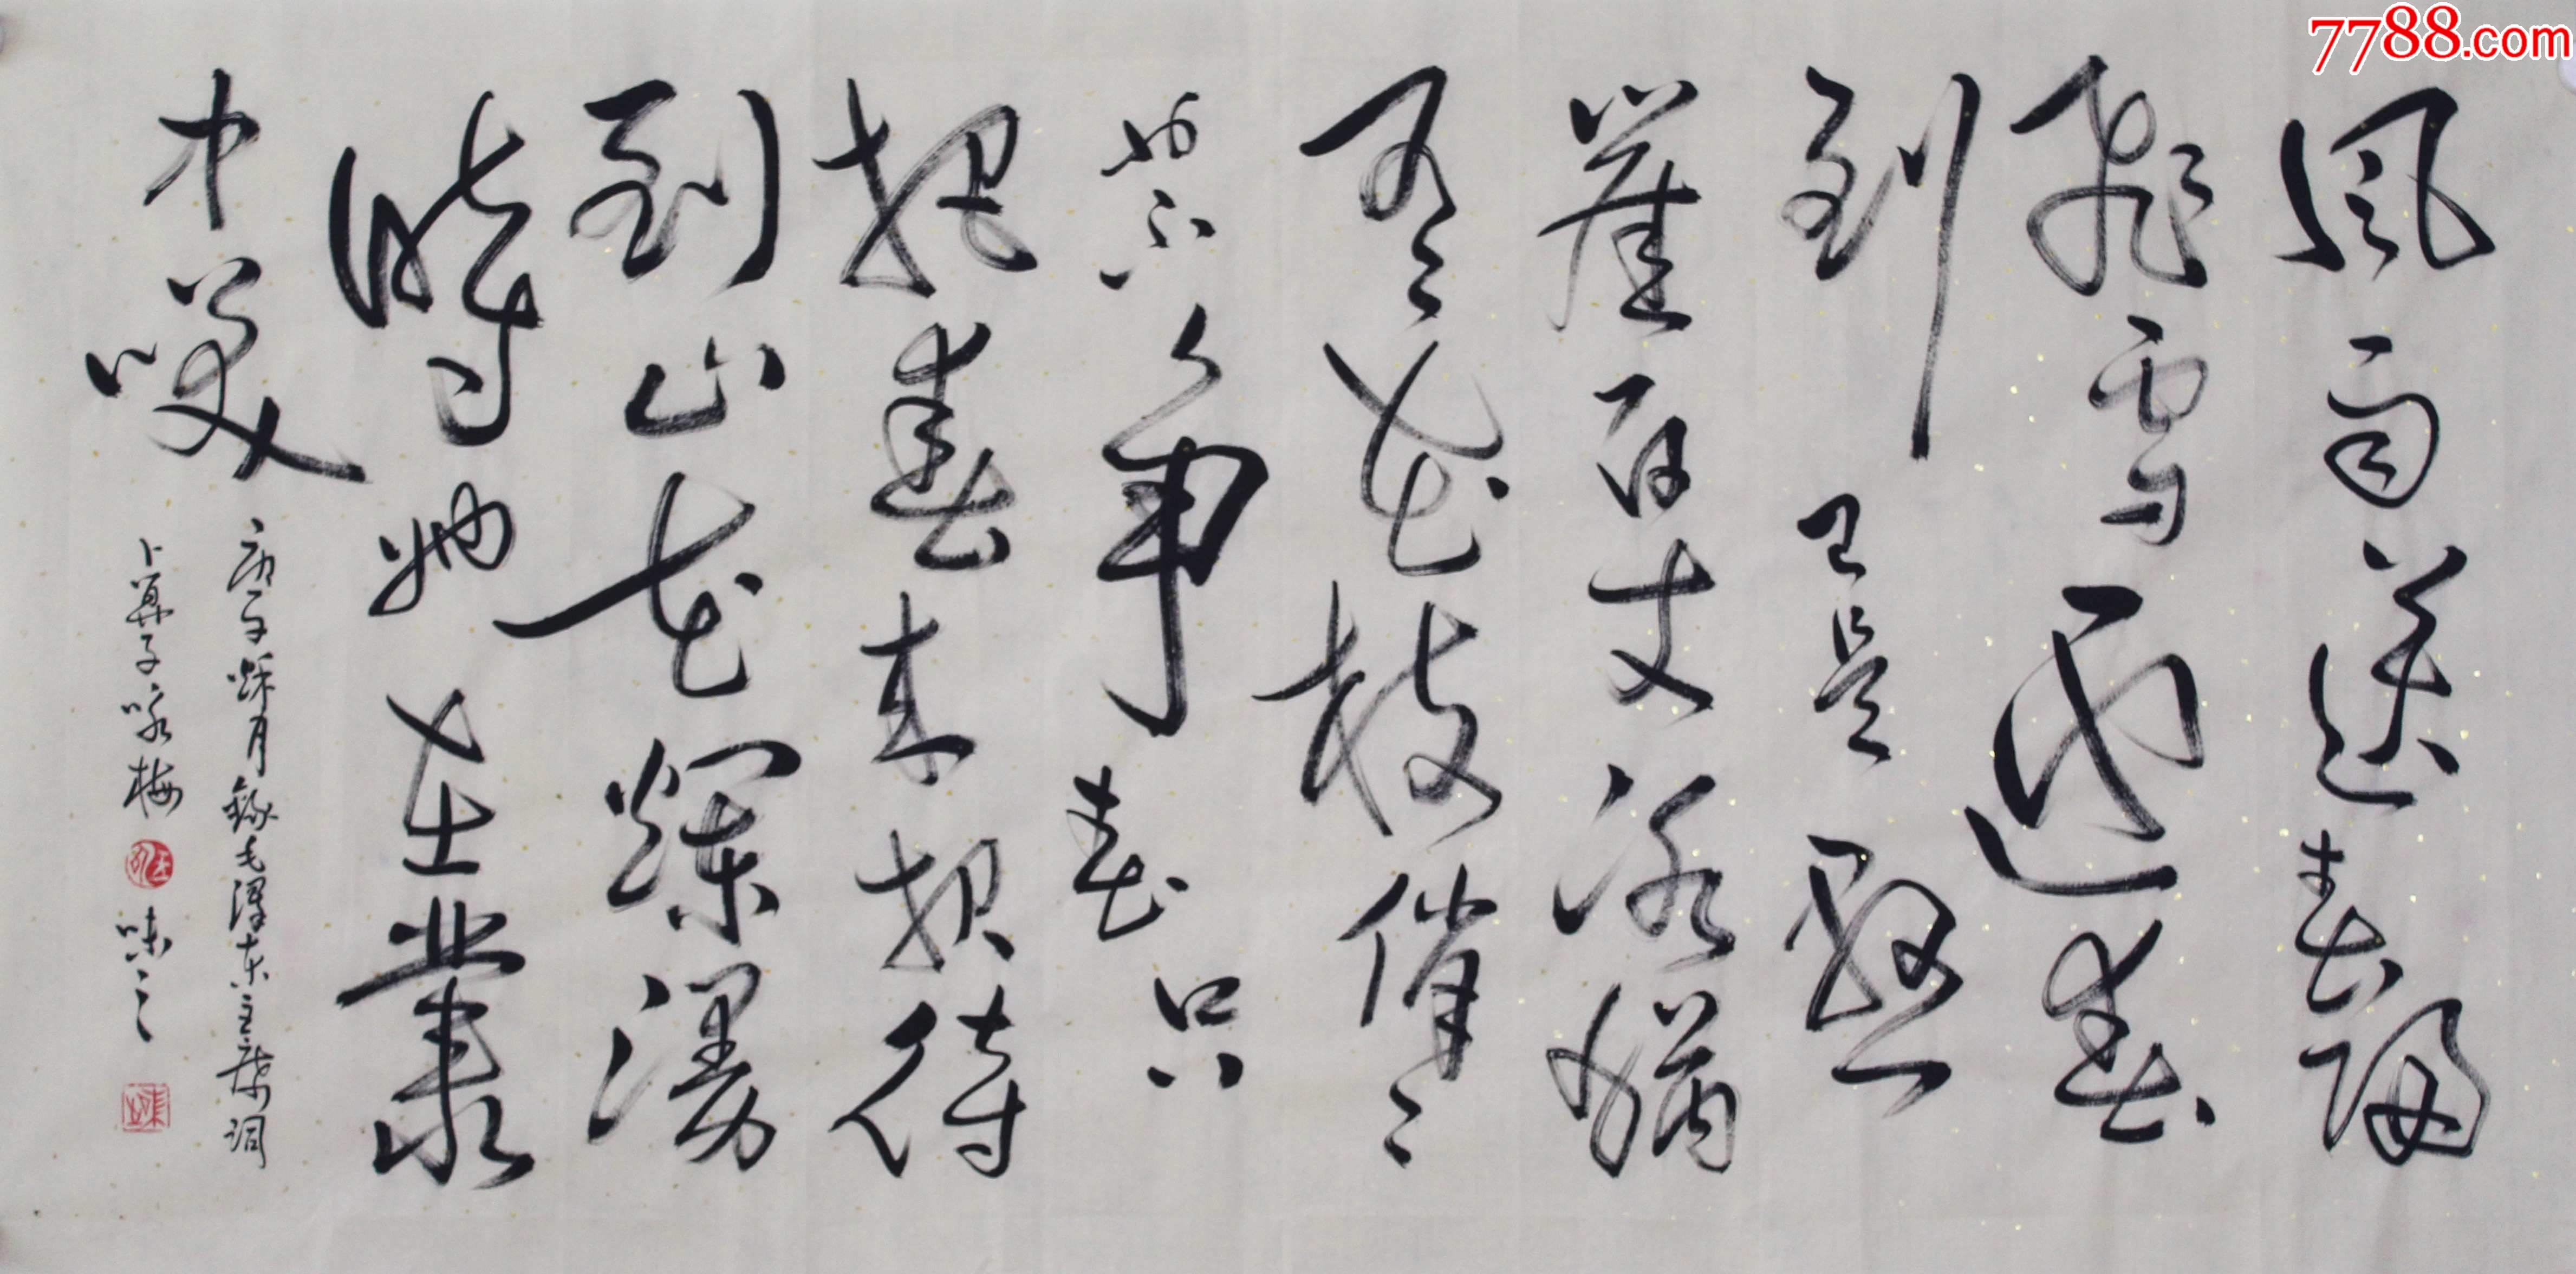 風雨送春歸
飛雪迎春
到已是懸
崖百丈冰猶
有花枝俏〻
也不爭春只
把春來報待
到山花爛漫
時她在叢
中咲
庚子秌月錄毛澤東主席詞
卜算子咏梅
7788.com